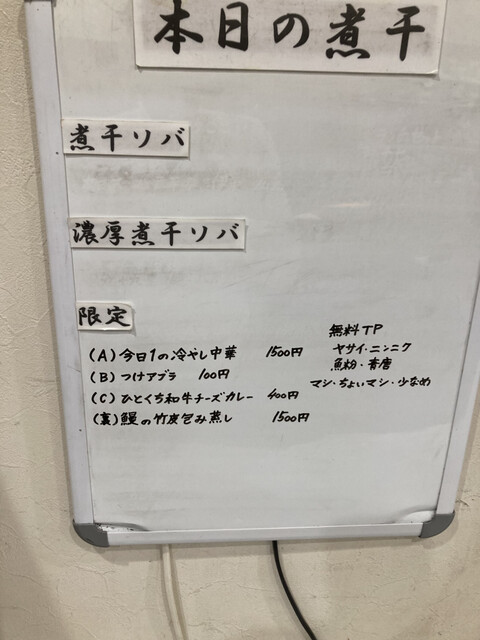 本日の煮干
煮干ソバ
濃厚煮干ソバ
限定
(A) 今日1の冷やし中華 1500円
(B) つけアブラ 100円
(C) ひとくち和牛チーズカレー 400円
(裏) 鰻の竹炭包み蒸し 1500円
無料TP
ヤサイ・ニンニク
魚粉・青唐
マシ・ちょいマシ・少なめ